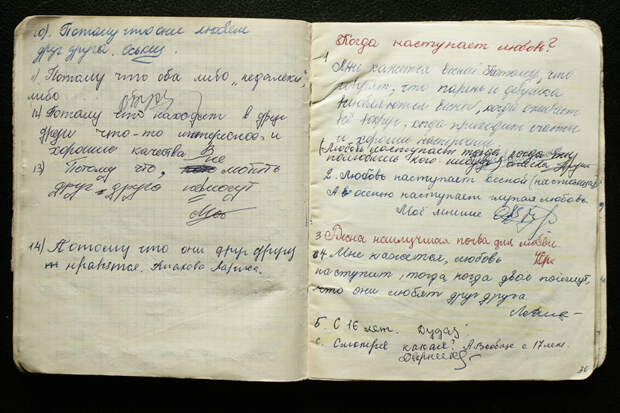 10). Потому что они любят
друг друга.
11) Потому что оба либо „недалеки",
либо
12) Потому что находят в друг
друге что-то интересное и
хорошие качества
13) Потому что, не любить
друг друга не могут
14) Потому что они друг другу
нравятся. Лариса.
Когда наступает любовь?
1
Мне кажется весной. Потому, что
говорят, что парень и девушка
влюбляются весной, когда оживает
всё вокруг, когда приходит счастье
и хорошее настроение
(Любовь наступает тогда, когда
полюбишь кого
2. Любовь наступает весной (настоящая)
А осенью наступает глупая любовь.
Моё мнение
3 Весна наилучшая почва для любви.
4. Мне кажется, любовь
наступит, тогда, когда двое поймут,
что они любят друг друга.
5. С 16 лет.
6. Смотря какая? А вообще с 17 лет.
30